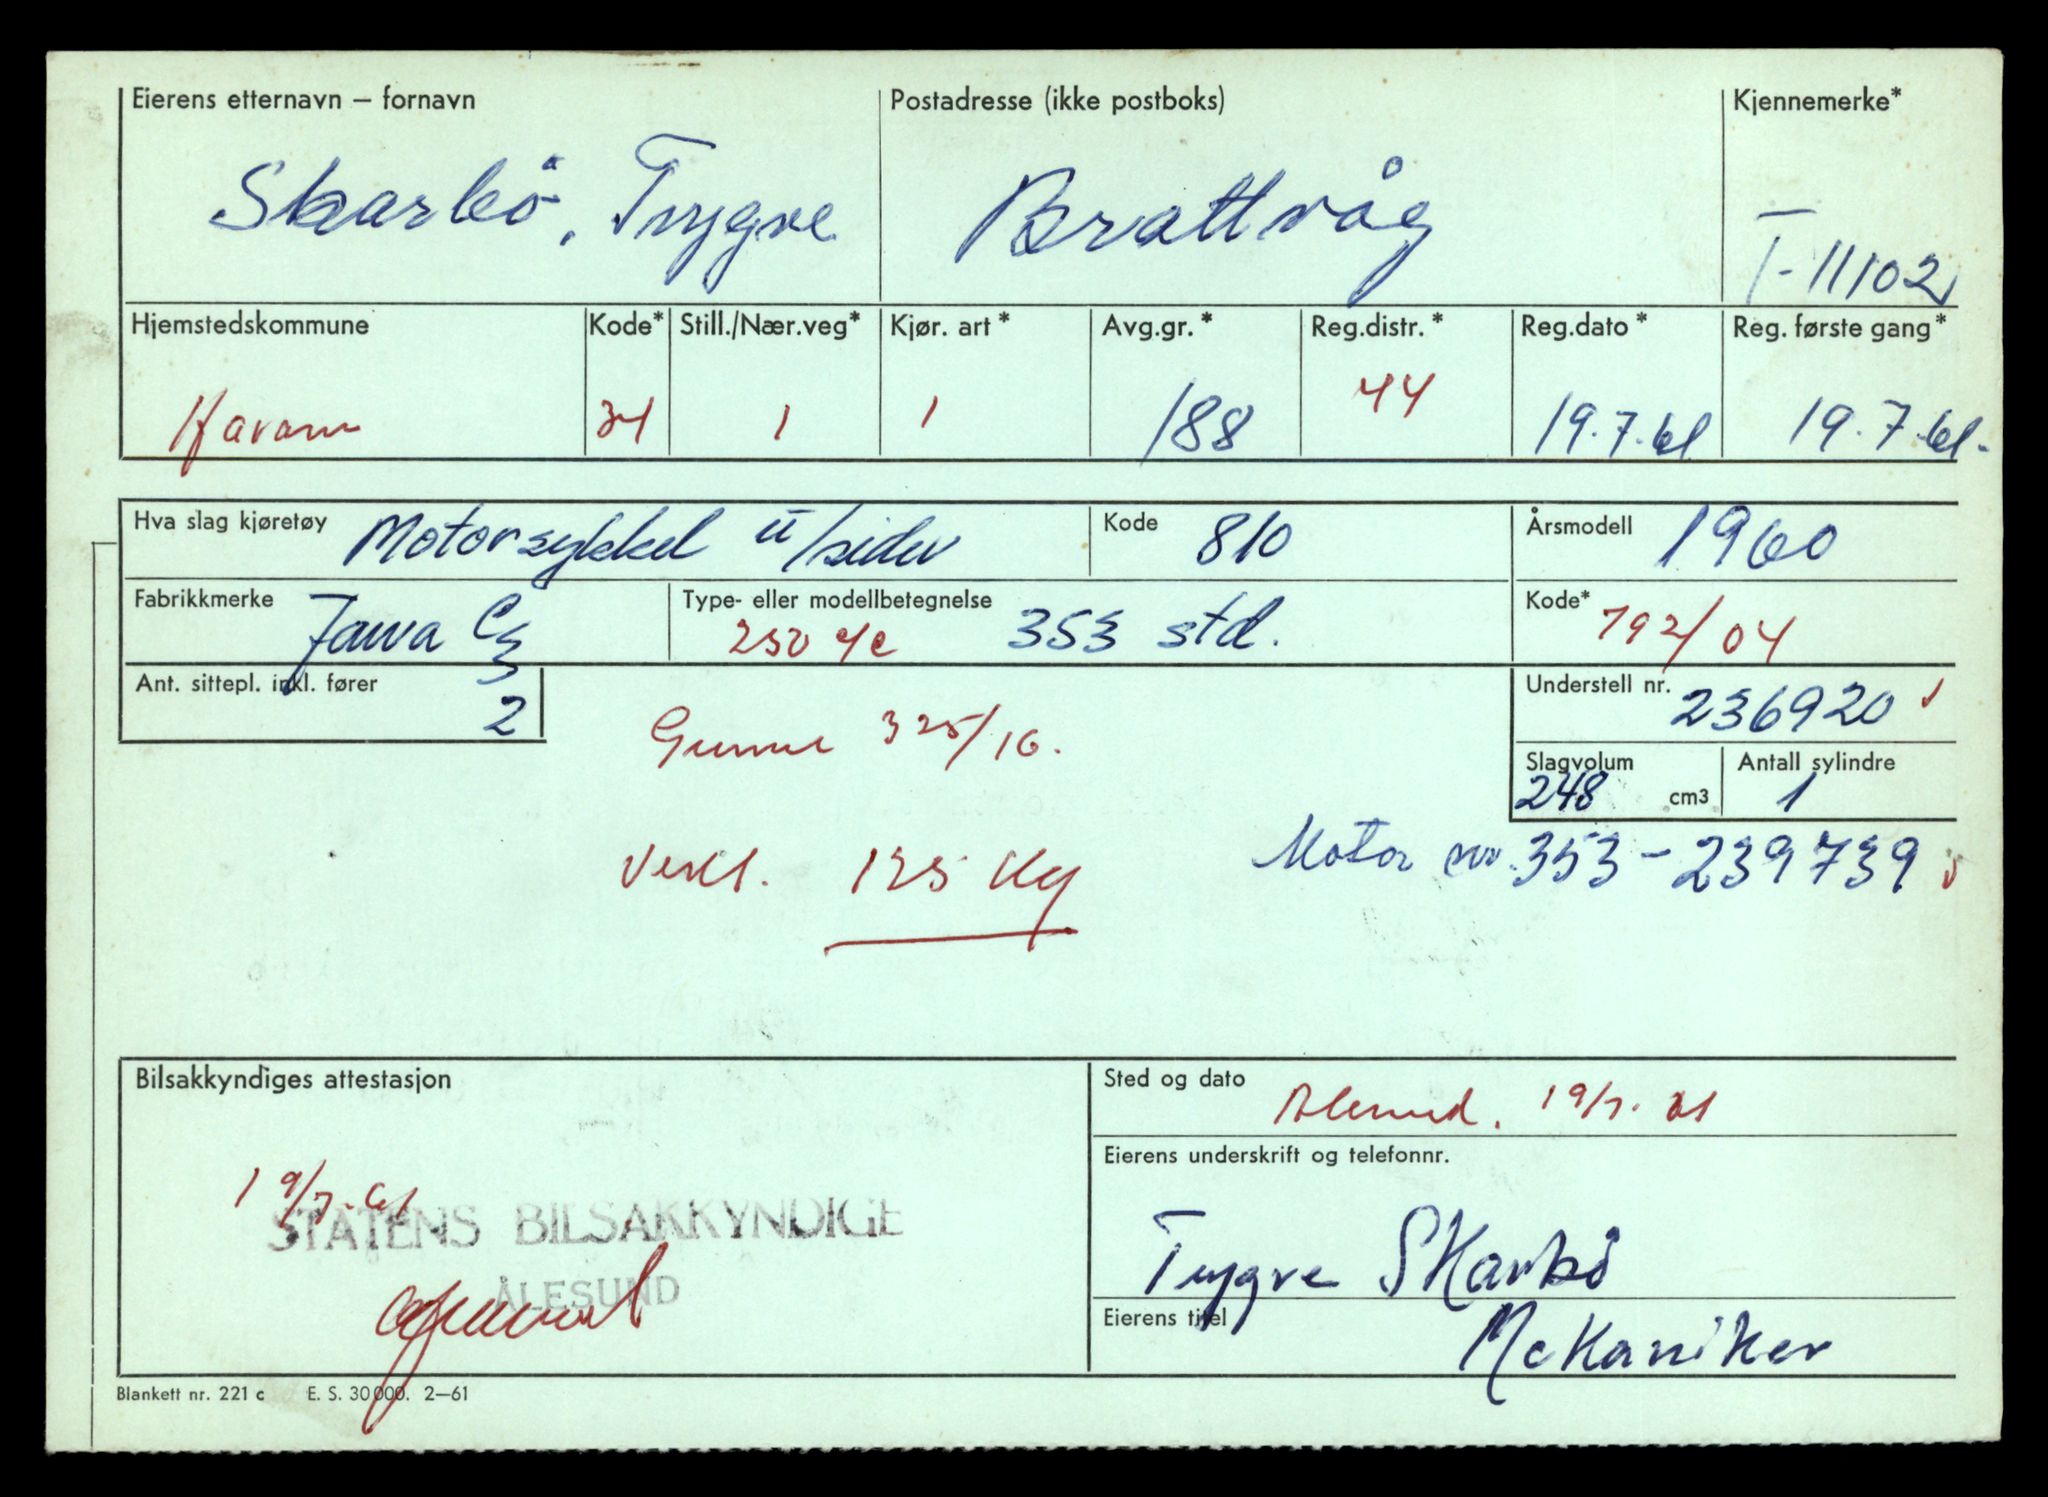 Eierens etternavn – fornavn Postadresse (ikke postboks) Kjennemerke*
Skarbö, Trygve Brattvåg T-11102
Hjemstedskommune Kode* Still./Nær.veg* Kjør. art* Avg.gr.* Reg.distr.* Reg.dato* Reg. første gang*
Haram 34 1 1 188 44 19.7.61 19.7.61.
Hva slag kjøretøy Motorsykkel u/sidev Kode 810 Årsmodell 1960
Fabrikkmerke Jawa Cz Type- eller modellbetegnelse 250 cc 353 std. Kode* 792/04
Ant. sittepl. inkl. fører 2 Understell nr. 236920
Gummi 325/16.
Slagvolum 248 cm3 Antall sylindre 1
Vekt. 125 Kg Motor nr. 353-239739
Bilsakkyndiges attestasjon Sted og dato Ålesund. 19/7.61
Eierens underskrift og telefonnr.
19/7-61
STATENS BILSAKKYNDIGE
ÅLESUND
Trygve Skarbö
Eierens titel Mekaniker
Blankett nr. 221 c E. S. 30000. 2—61